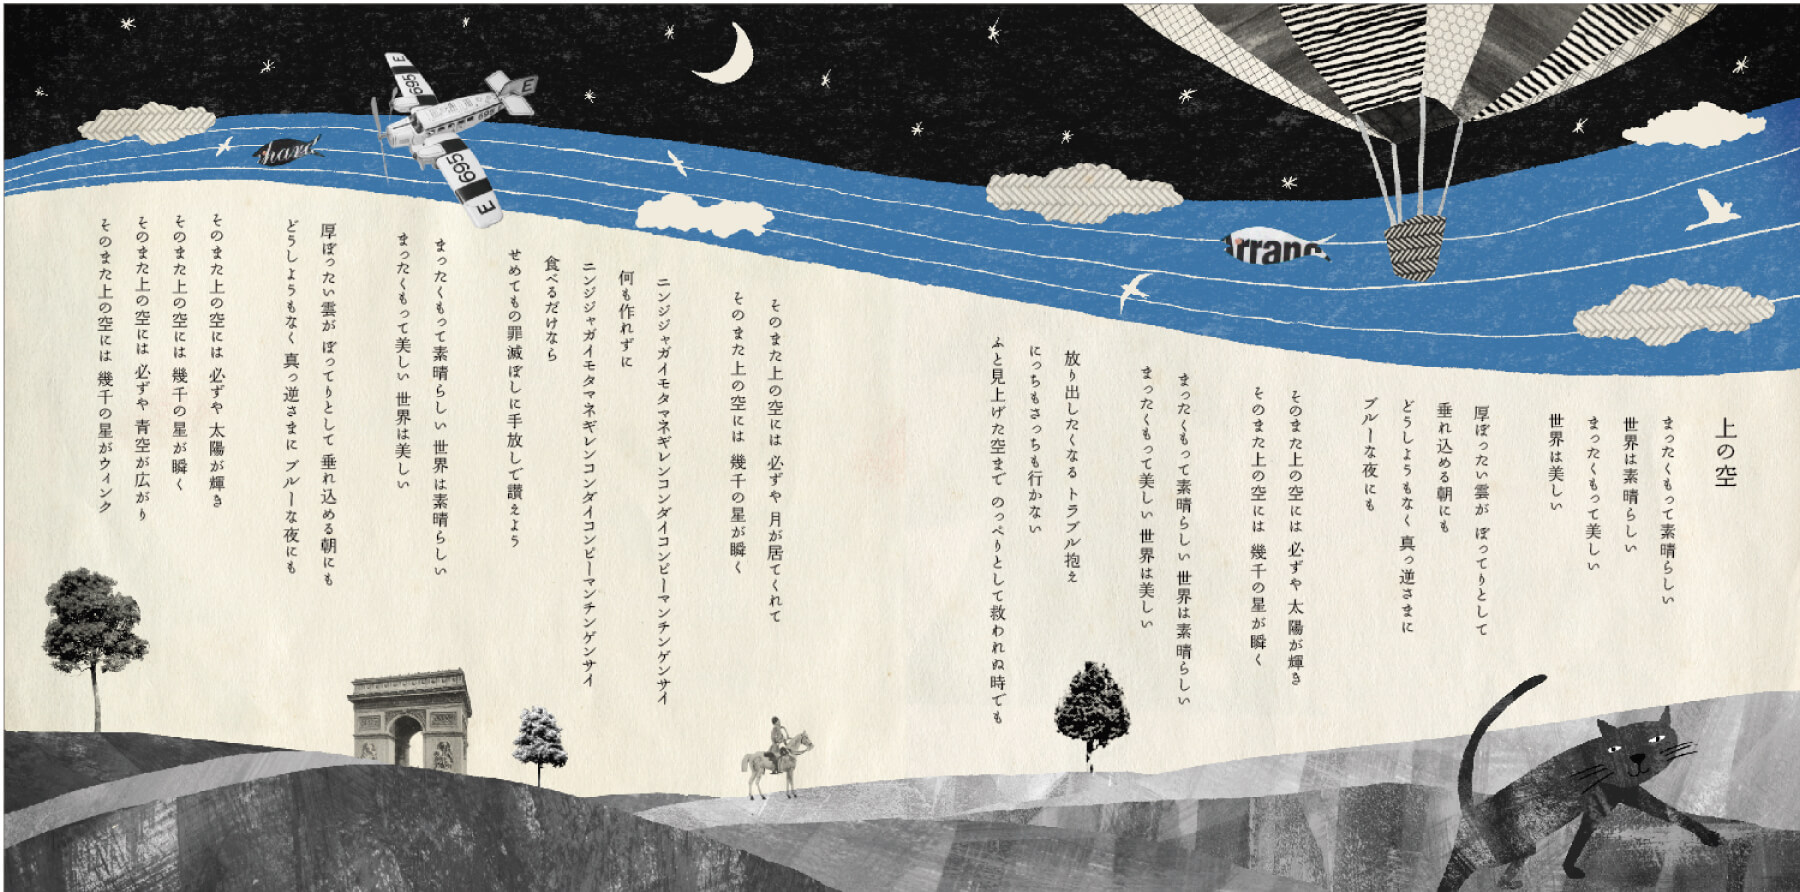 上の空
まったくもって素晴らしい
世界は素晴らしい
まったくもって美しい
世界は美しい
厚ぼったい雲が ぼってりとして
垂れ込める朝にも
どうしようもなく 真っ逆さまに
ブルーな夜にも
そのまた上の空には 必ずや 太陽が輝き
そのまた上の空には 幾千の星が瞬く
まったくもって素晴らしい 世界は素晴らしい
まったくもって美しい 世界は美しい
放り出したくなる トラブル抱え
にっちもさっちも行かない
ふと見上げた空まで のっぺりとして救われぬ時でも
そのまた上の空には 必ずや 月が居てくれて
そのまた上の空には 幾千の星が瞬く
ニンジジャガイモタマネギレンコンダイコンピーマンチンゲンサイ
何も作れずに
ニンジジャガイモタマネギレンコンダイコンピーマンチンゲンサイ
食べるだけなら
せめてもの罪滅ぼしに手放しで讃えよう
まったくもって素晴らしい 世界は素晴らしい
まったくもって美しい 世界は美しい
厚ぼったい雲が ぼってりとして 垂れ込める朝にも
どうしようもなく 真っ逆さまに ブルーな夜にも
そのまた上の空には 必ずや 太陽が輝き
そのまた上の空には 幾千の星が瞬く
そのまた上の空には 必ずや 青空が広がり
そのまた上の空には 幾千の星がウィンク
E 695
E 695
E
hard
arrang